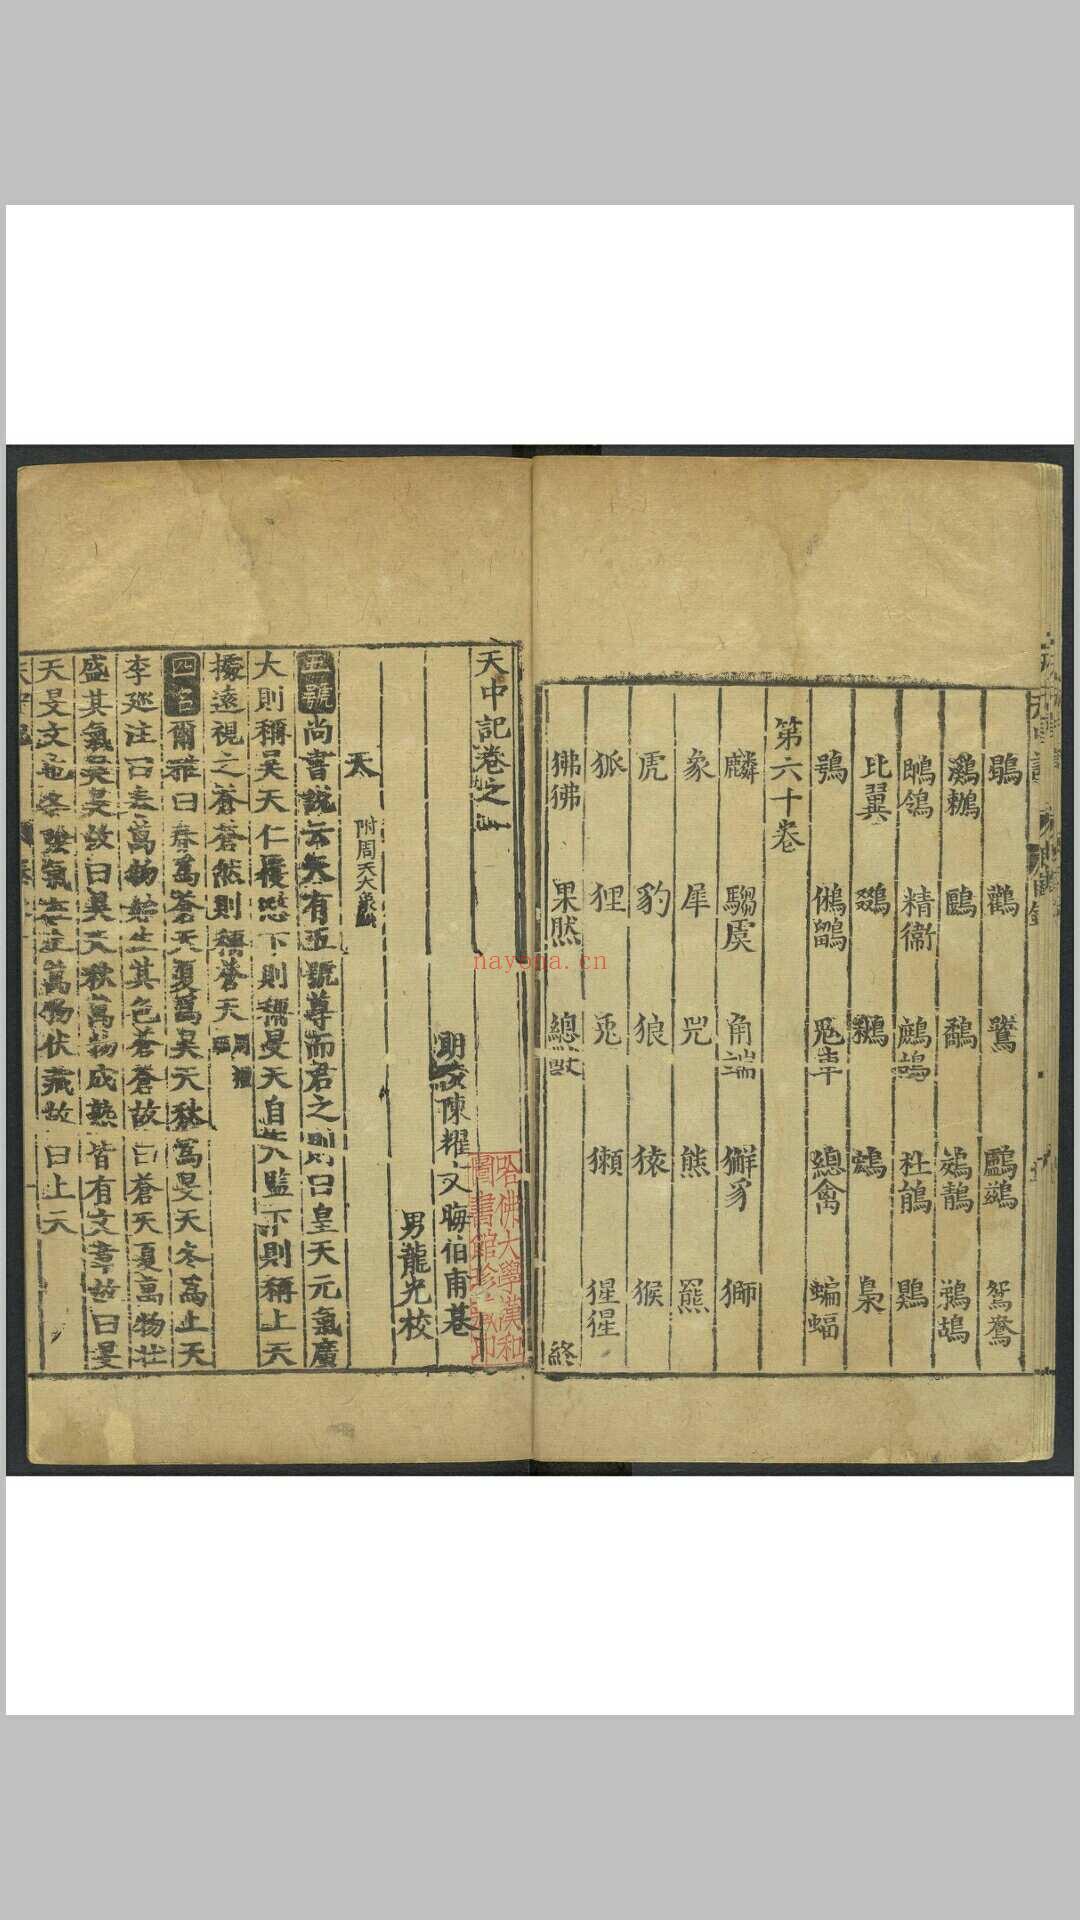 鶡 鸛 鷖 鸕鷀 鴛鴦
鸂鶒 鷗 鷸 鵁鶄 鵜鶘
鶺鴒 精衛 鷓鴣 杜鵑 鷃
比翼 鷄 鵝 鴆 梟
鶚 鵂鶹 鳧 總禽 蝙蝠
第六十卷
麟 騶虞 角端 獬豸 獅
象 犀 兕 熊 羆
虎 豹 狼 猿 猴
狐 狸 兎 獺 猩猩
狒狒 果然 總獸 終
天中記卷之一
明 陳耀文晦伯甫 
男龍光校
天 附周天大象
五號尚書說云天有五號尊而君之則曰皇天元氣廣
大則稱昊天仁覆愍下則稱旻天自天監下則稱上天
據遠視之蒼蒼然則稱蒼天 周禮
四名爾雅曰春為蒼天夏為昊天秋為旻天冬為上天
李巡注曰春萬物始生其色蒼蒼故曰蒼天夏萬物壯
盛其氣昊昊故曰昊天秋萬物成熟皆有文章故曰旻
天旻文也冬陰氣在上萬物伏藏故曰上天
哈佛大學漢和
圖書館珍藏印
nayona.cn